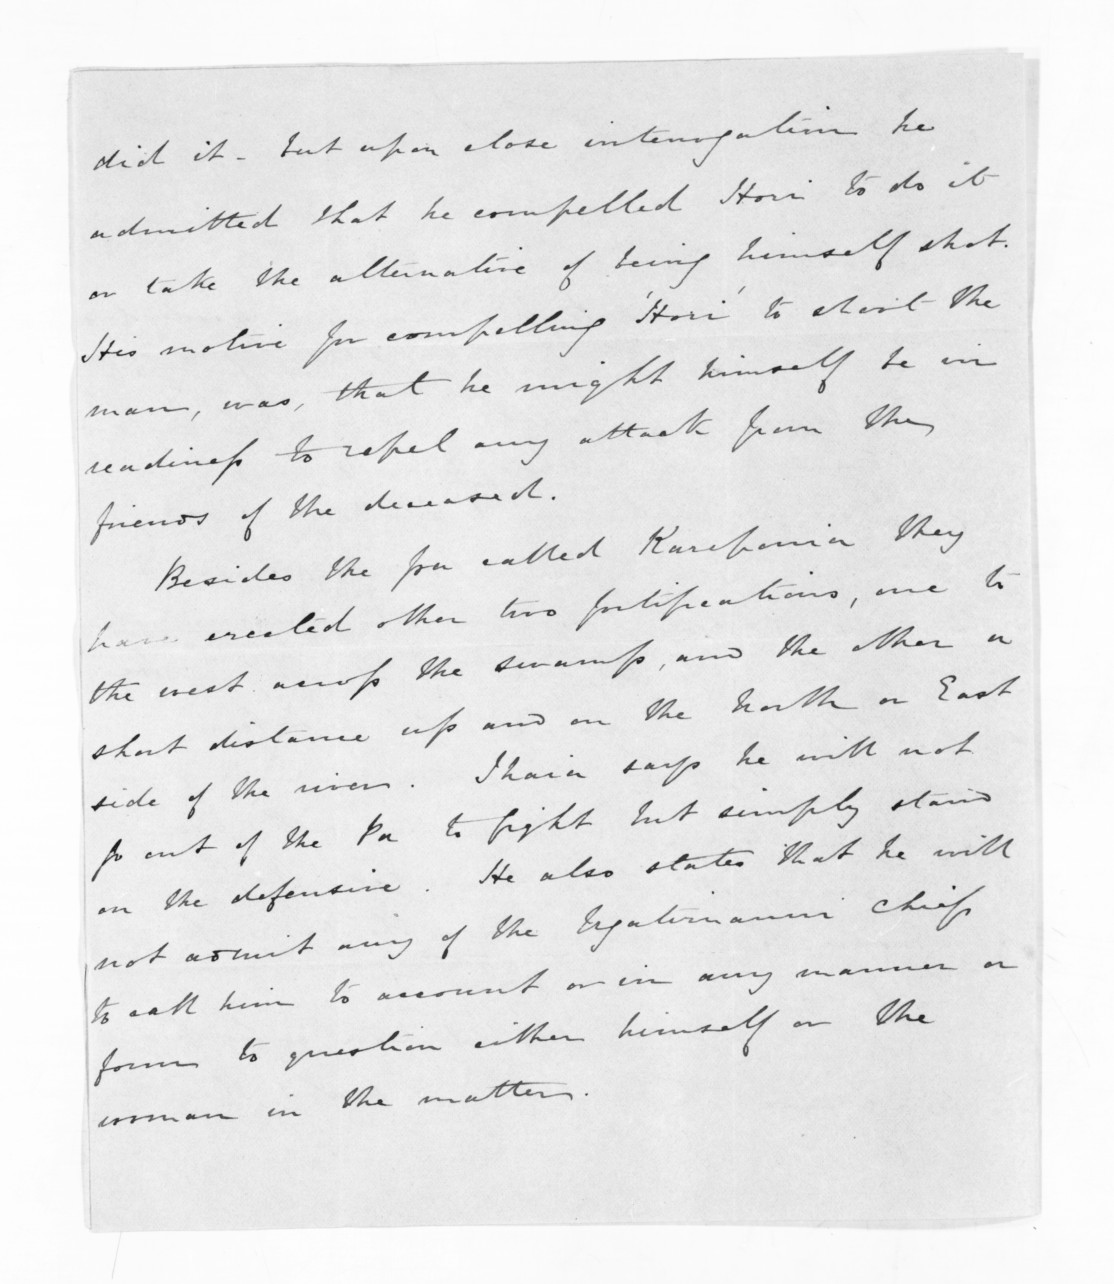 did it - but upon close interrogation he
admitted that he compelled Hori to do it
or take the alternative of being himself shot.
His motive for compelling 'Hori' to shoot the
man, was, that he might himself be in
readiness to repel any attack from the
friends of the deceased.
Besides the pa called Karaponia they
have erected other two fortifications, one to
the west across the swamp, and the other a
short distance up and on the North or East
side of the river. Ihaia says he will not
go out of the Pa to fight but simply stand
on the defensive. He also states that he will
not admit any of the Ngatimaniapoto chiefs
to call him to account or in any manner or
form to question either himself or the
woman in the matter.